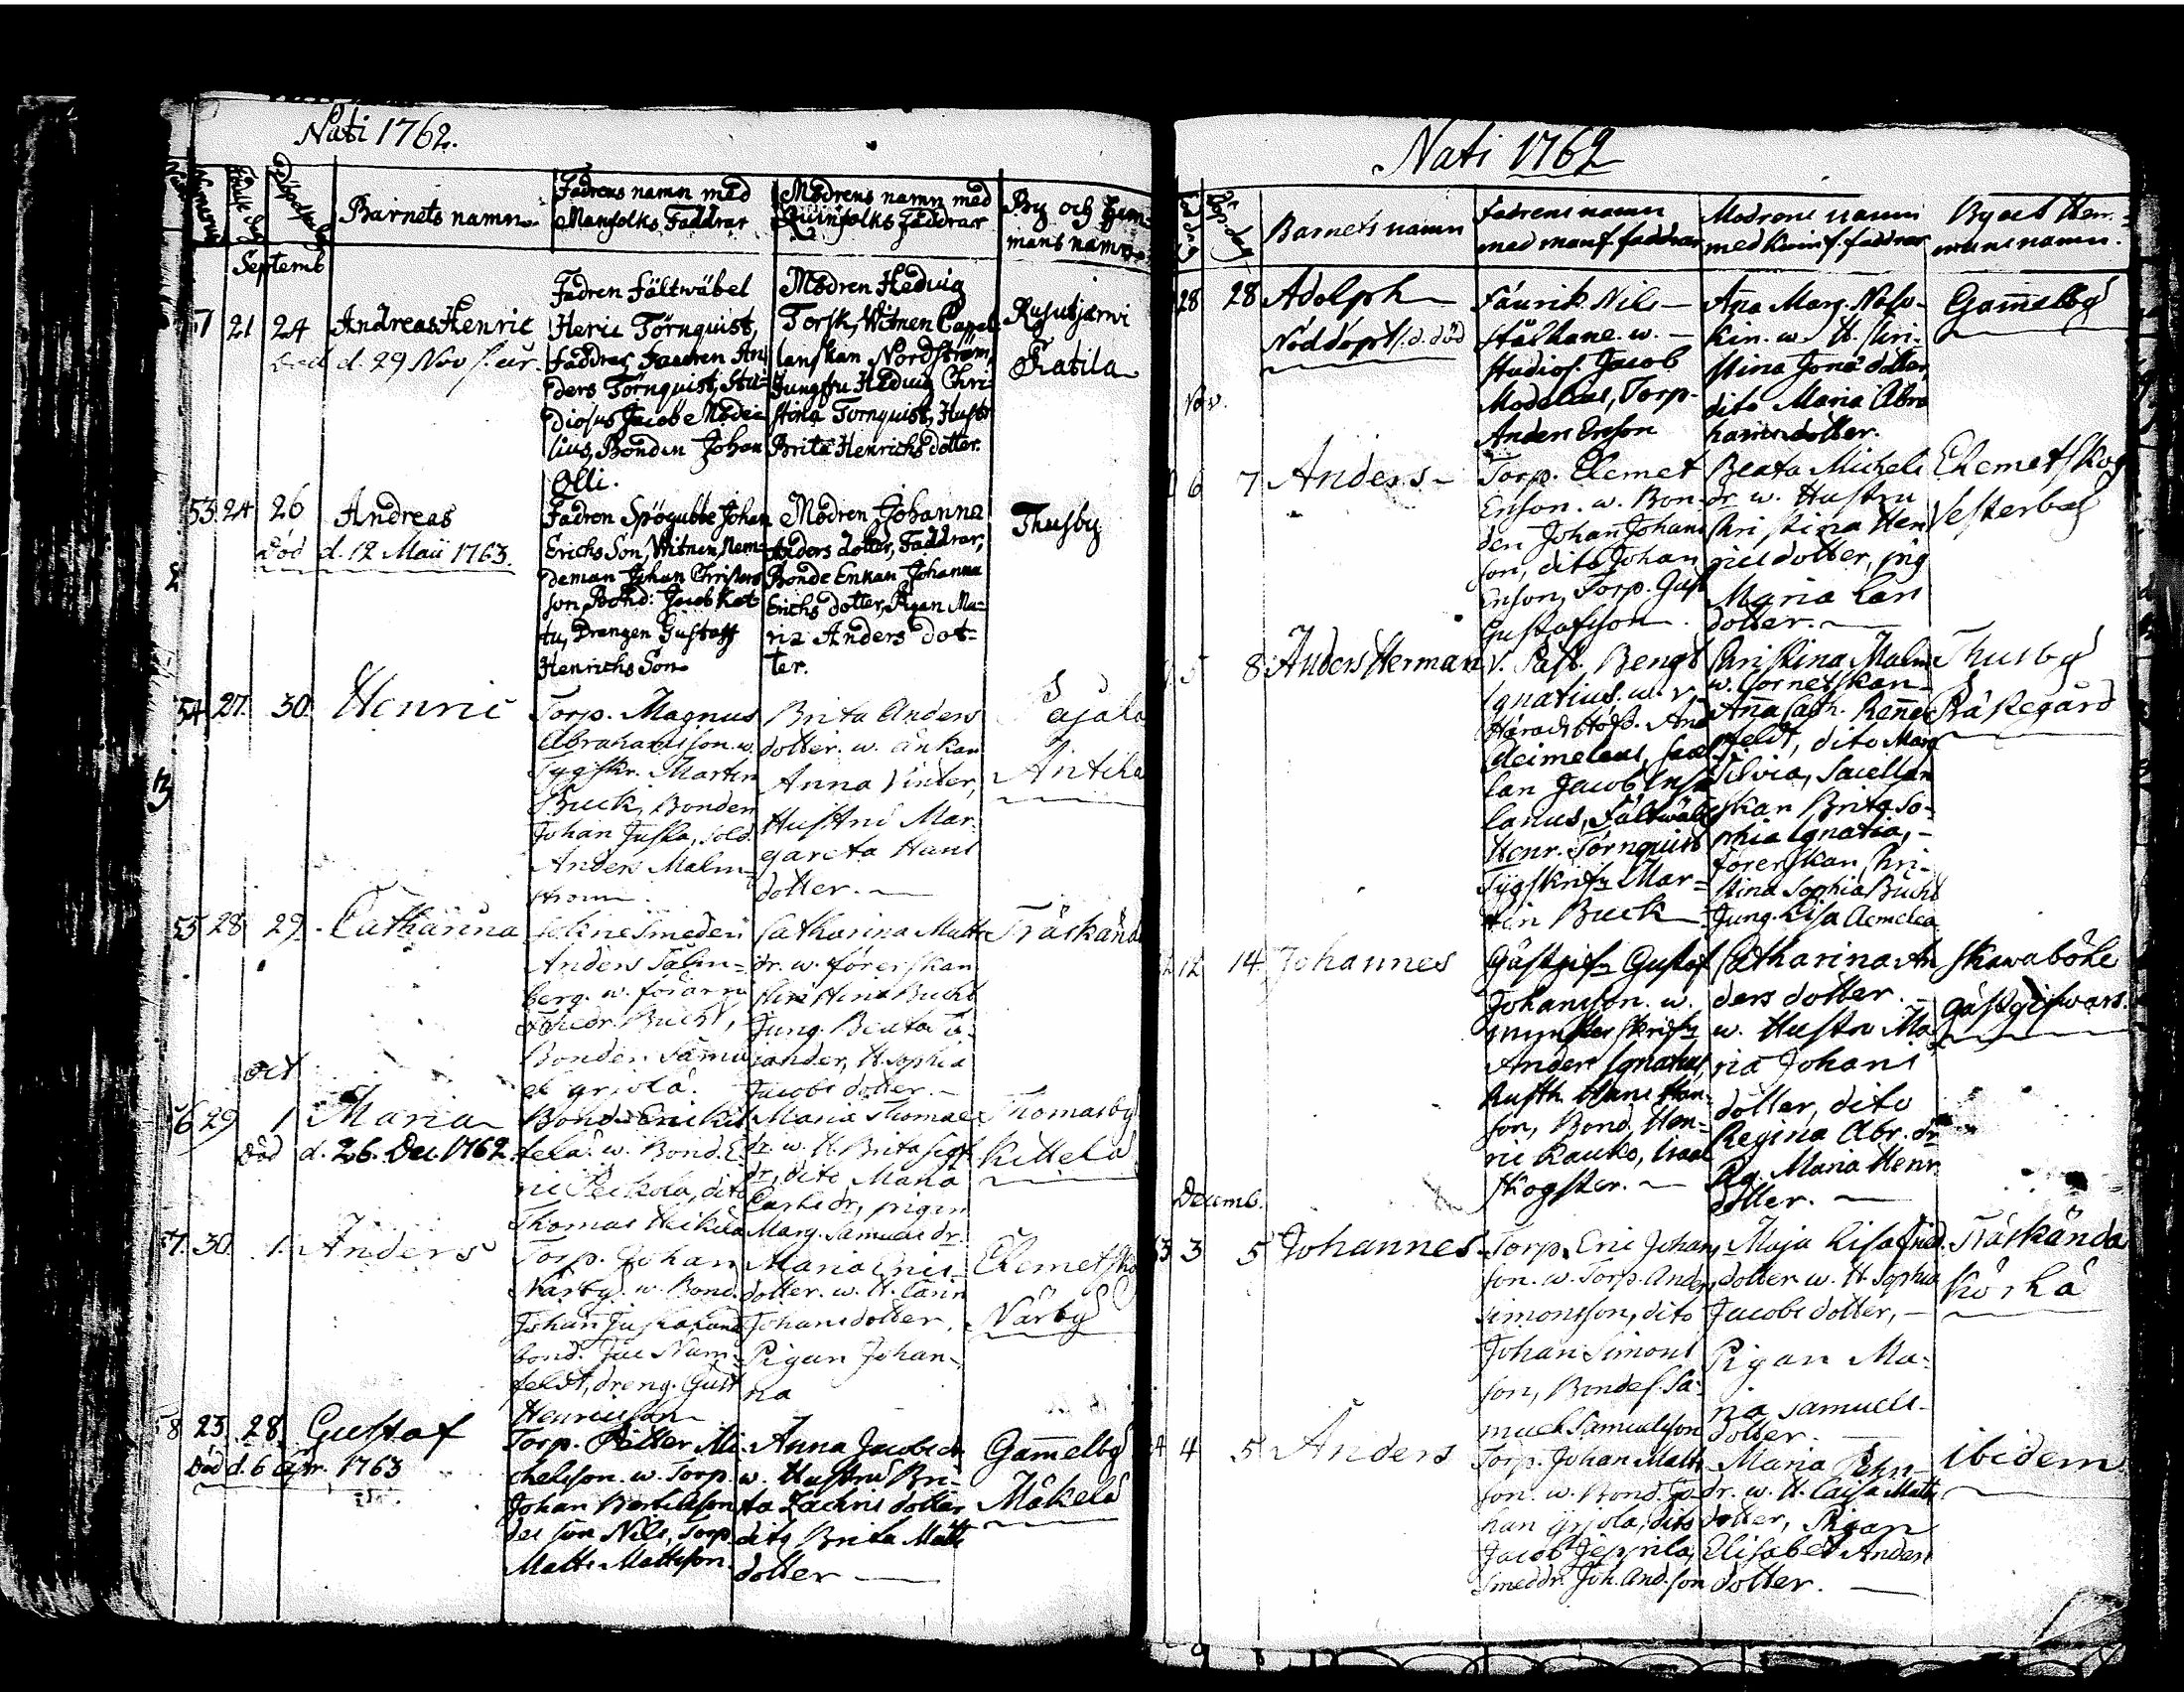 Nati 1762.
Barnets namn
Fadrens namn med
Manfolks Faddrar
Modrens namn med
Quinfolks Faddrar
By och Hem=
mans namn
Septemb
21 24 Andreas Henric
död d. 29 Nov s. år.
Fadren Fältwäbel
Heric Törnquist,
Faddrar, An
ders Törnquist, Stu=
diosus Jacob Mode
lius, Bonden Johan
Olli.
Modren Hedvig
Torsk, Witnen Capel
lanskan Nordström,
Jungfru Hedvig Chri
stina Tornquist, Hustr
Brita Henrichs dotter.
Rusutjärvi
Ratila
53. 24 26 Andreas
död d. 12 Maii 1763.
Fadren Spögubbe Johan
Erichs Son, Witnen, Nem=
deman Johan Christers
son, Bond: Jacob Ket
tu, Drengen Gustaff
Henrichs Son
Modren Johanna
Anders dotter, Faddrar,
Bonde Enkan Johanna
Erichs dotter, Pigan Ma=
ria Anders dot=
ter.
Thusby
54 27. 30. Henric
Torp. Magnus
Abrahamsson. w.
Tygskr. Martin
Buck, Bonden
Johan Juska, sold.
Anders Malm=
strom.
Brita Anders
dotter. w. änkan
Anna Vinter,
Hustru Mar=
gareta Hans
dotter.
Pajala
Antila
55 28 29. Catharina
Anders Salm=
berg. w. förarn
Fredr. Bucht,
Bonden Samu
el Grjola.
Catharina Matts
dr. w. förerskan
Christina Bucht
Jung. Beata
jander, H. Sophia
Jacobs dotter.
Träskända
Oct
56 29 1 Maria
död d. 26. Dec 1762.
Bond. Eric Kit
tela. w. Bond. E
ric Peckola, dito
Thomas Heikila
Maria Thomae
dr. w. H. Brita Sigf.
dr, dito Maria
Carls dr, pigan
Marg. Samuels dr.
Thomasby
Kittela
57. 30. 1. Anders
Torp. Johan
Närby. w. Bond.
Johan Juska,
bond. Num=
feldt, dreng. Gust
Henricsson
Maria Erics
dotter. w. H. Carin
Johansdotter,
Pigan Johan=
na
Clemetsko
Närby
58 23. 28. Gustaf
död d. 6 Apr. 1763
Torp. Petter Mi
chelsson. w. Torp.
Johan Bertilsson
des son Nils, Torp.
Matts Mattsson.
Anna Jacobs dr
w. Hustru Bri=
ta Zachris dotter
dito Brita Matts
dotter
Gam̄elby
Mäkelä
Nati 1762
Barnets namn
Fadrens namn
med manf. faddrar
Modrens namn
med kuinf. faddrar
By och Hem=
mans namn.
28 28 Adolph
Nöddöpt, s.d. död
Fäinrik Nils
Stålhane. w.
Studios. Jacob
Modelius, Torp.
Anders Ersson
Ana Marg. Naso=
kin. w. H. Chri=
stina Jonæ dotter,
dito Maria Abra
hams dotter.
Gam̄elby
Nov.
6 7 Anders
Torp. Clemet
Ersson. w. Bon=
den Johan Johans
son, dito Johan
Ersson, Torp. Gust
Gustafsson.
Beata Michels
dr. w. Hustru
Christina Hen
rics dotter, pig
Maria Lars
dotter.
Clemetskog
Vesterby
5 8 Anders Herman
V. Past. Bengt
Ignatius. w. v.
Häradshöfd. And
Aeimelaeus, Sacel
lan Jacob
lanus, Fältwäb
Henr. Törnquist
Tygskrifv. Mar=
tin Buck
Christina Malm
w. Cornetskan
Ana Cath. Renner
feldt, dito Marg
Silvia, Sacellan
skan Brita So=
phia Ignatia,
förerskan Chri=
stina Sophia Bucht
Jung. Lisa Aemelea.
Thusby
Präkegård
12 14 Johannes
Gästgifv. Gustaf
Johansson. w.
Mynsterskrifv
Anders Ignatius,
Rusth. Hans Han
son, Bond. Hen=
ric Kauko, Isaac
Skogster.
Catharina An
ders dotter.
w. Hustru Ma
ria Johans
dotter, dito
Regina Abr. dr
Pig. Maria Henr.
dotter.
Skavaböhle
Gästgifvars.
Decemb.
3 5 Johannes
Torp. Eric Johans
son. w. Torp. Anders
Simonsson, dito
Johan Simons
son, Bondes. Sa=
muel Samuelsson
Maja Lisa Fred.
dotter w. H. Sophia
Jacobs dotter,
Pigan Ma=
ria Samuels
dotter.
Träskända
Körkä
4 5 Anders
Torp. Johan Matts
son. w. Bond. Jo
han Grjola, dito
Jacob Jeppila,
Smeddr. Joh. And.son
Maria Pehrs
dr. w. H. Caisa Matts
dotter, Pigan
Elisabet Anders
dotter.
ibidem